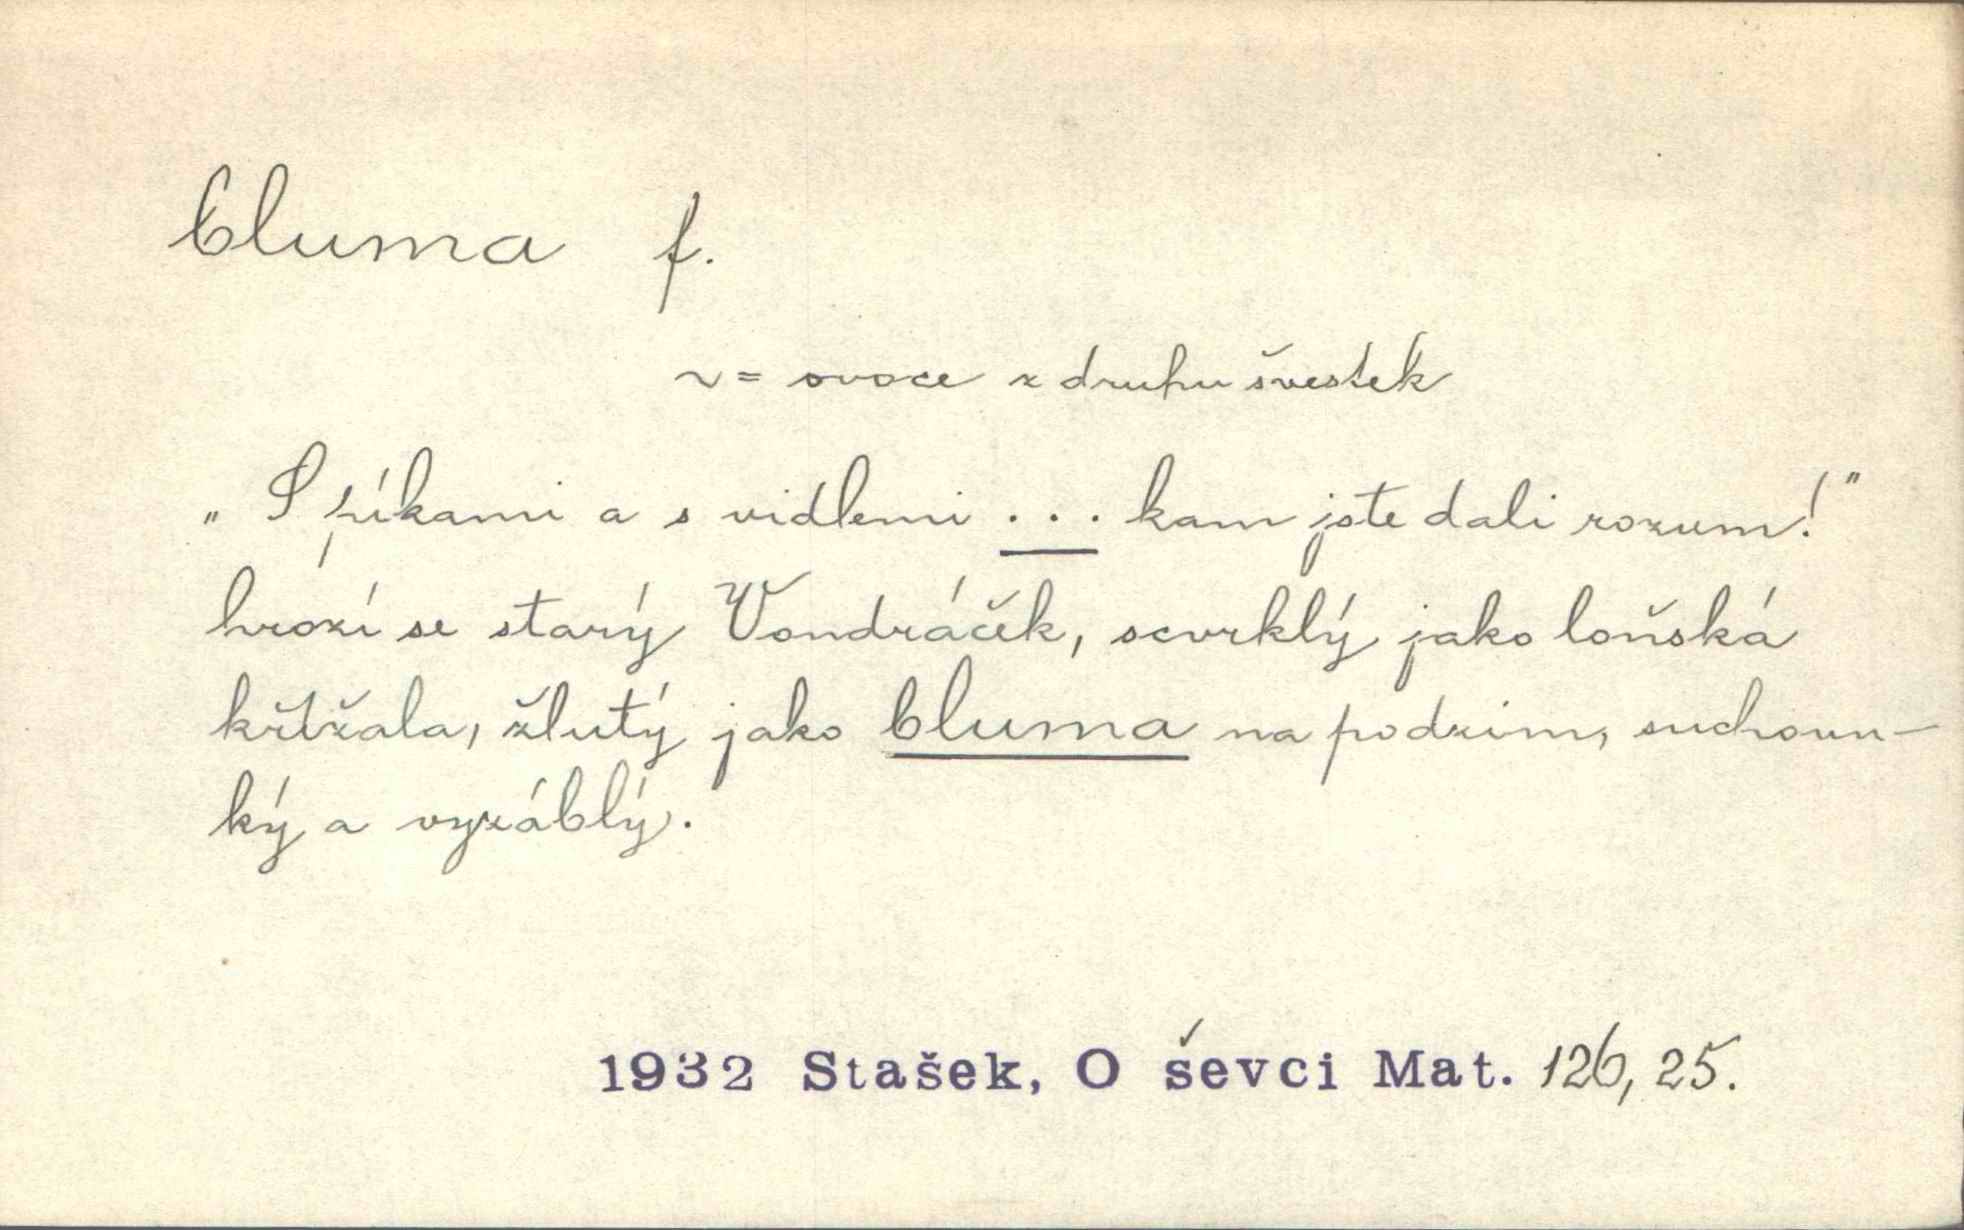 bluma f.
~ = ovoce z druhu švestek
„S píkami a s vidlemi ... kam jste dali rozum!"
hrozí se starý Vondráček, scvrklý jako loňská
křížala, žlutý jako bluma na podzim, suchoun-
ký a vyzáblý.
1932 Stašek, O ševci Mat. 126, 25.